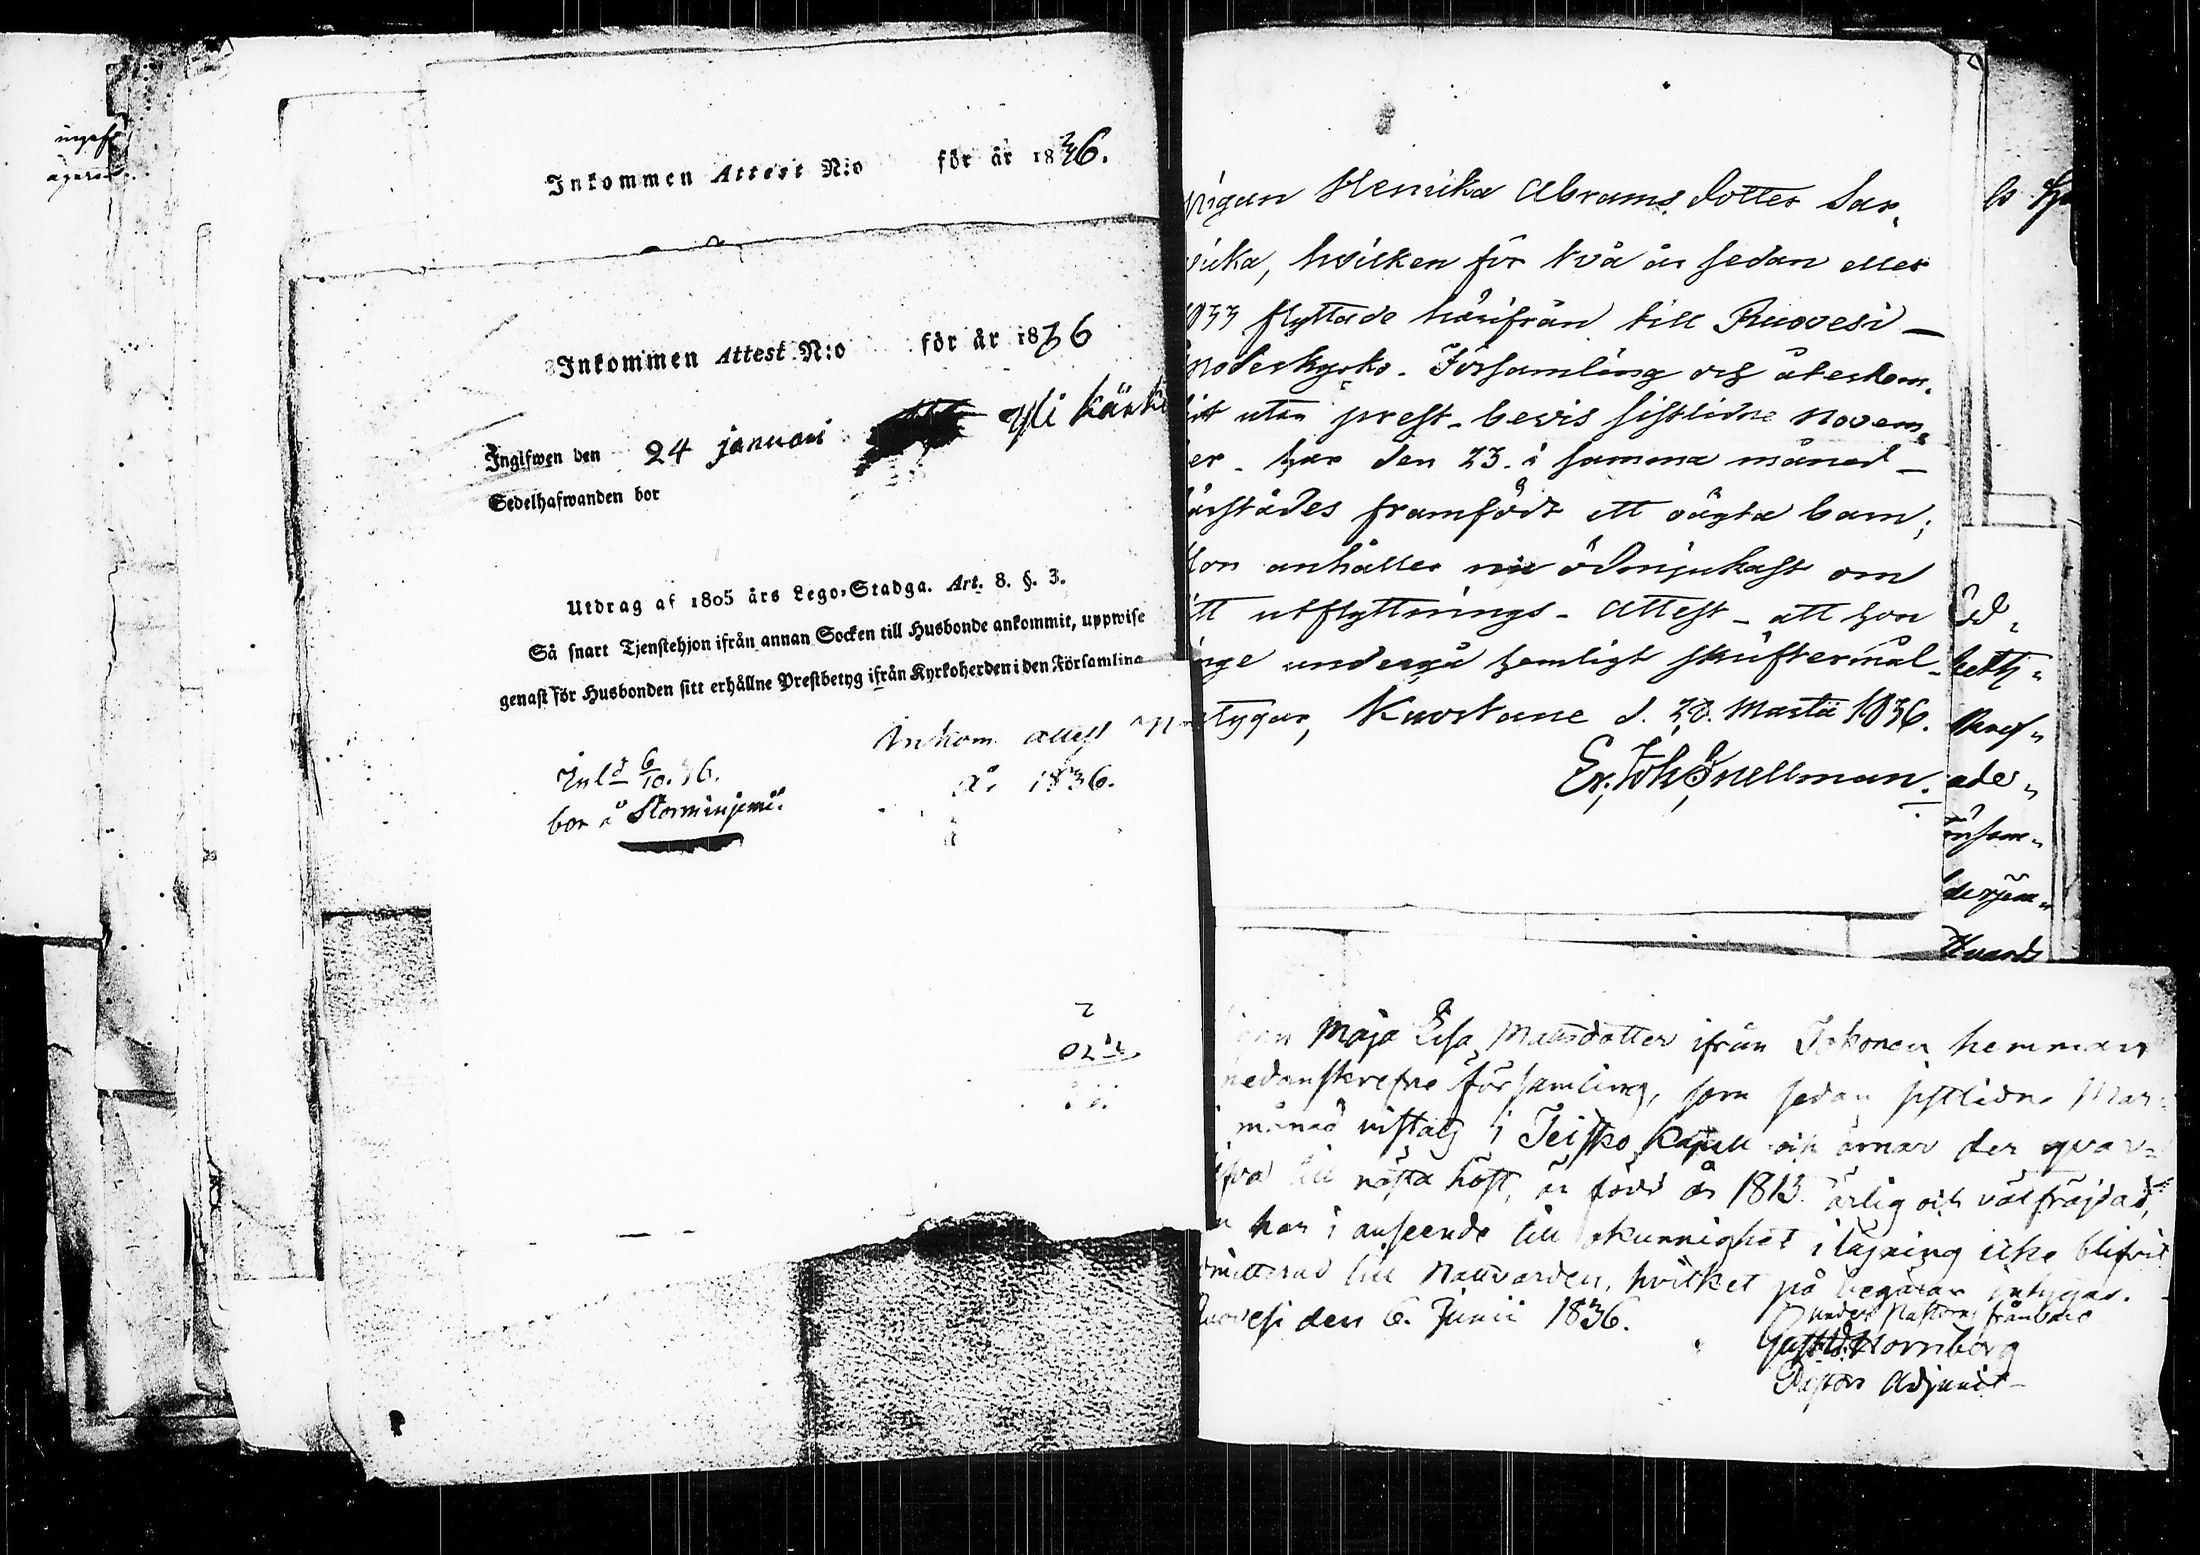 Inkommen Attest N:o för år 1836.
Inkommen Attest N:o för år 1836
Ingifwen den 24 januari Yli Kärki
Sedelhafwanden bor
Utdrag af 1805 års Lego-Stadga. Art. 8. §. 3.
Så snart Tjenstehjon ifrån annan Socken till Husbonde ankommit, uppwise
genast för Husbonden sitt erhållne Prestbetyg ifrån Kyrkoherden i den Församling
Inkom attest
år 1836.
Inl d 6/10. 36.
bor å
pigan Henrika Abrams dotter Sar-
vika, hvilken för två år sedan eller
1833 flyttade härifrån till Ruovesi
Moderkyrko-Församling och återkom-
mit utan prest-bevis sistlidne Novem-
ber, har den 23. i samma månad
härstädes framfödt ett oägta barn;
Hon anhåller nu ödmjukast om
sitt utflyttnings-Attest att hon
undergå hemligt skriftermål
Kuortane d. Martii 1836.
Er. Joh. Snellman.
beth-
Maja Lisa Mattsdotter ifrån hemman
nedanskrefne församling, som sedan sistlidne Mar-
månad vistats i Teisko Kapell och ärnar der qvar-
till nästa höst, är född år 1813. ärlig och välfräjdad,
har i anseende till okunnighet i läsning icke blifvit
admitterad till Nattvarden, hvilket på begäran intygas.
Ruovesi den 6. Junii 1836.
under Pastoris frånvaro
Gust. Hornborg
Pastors Adjunct